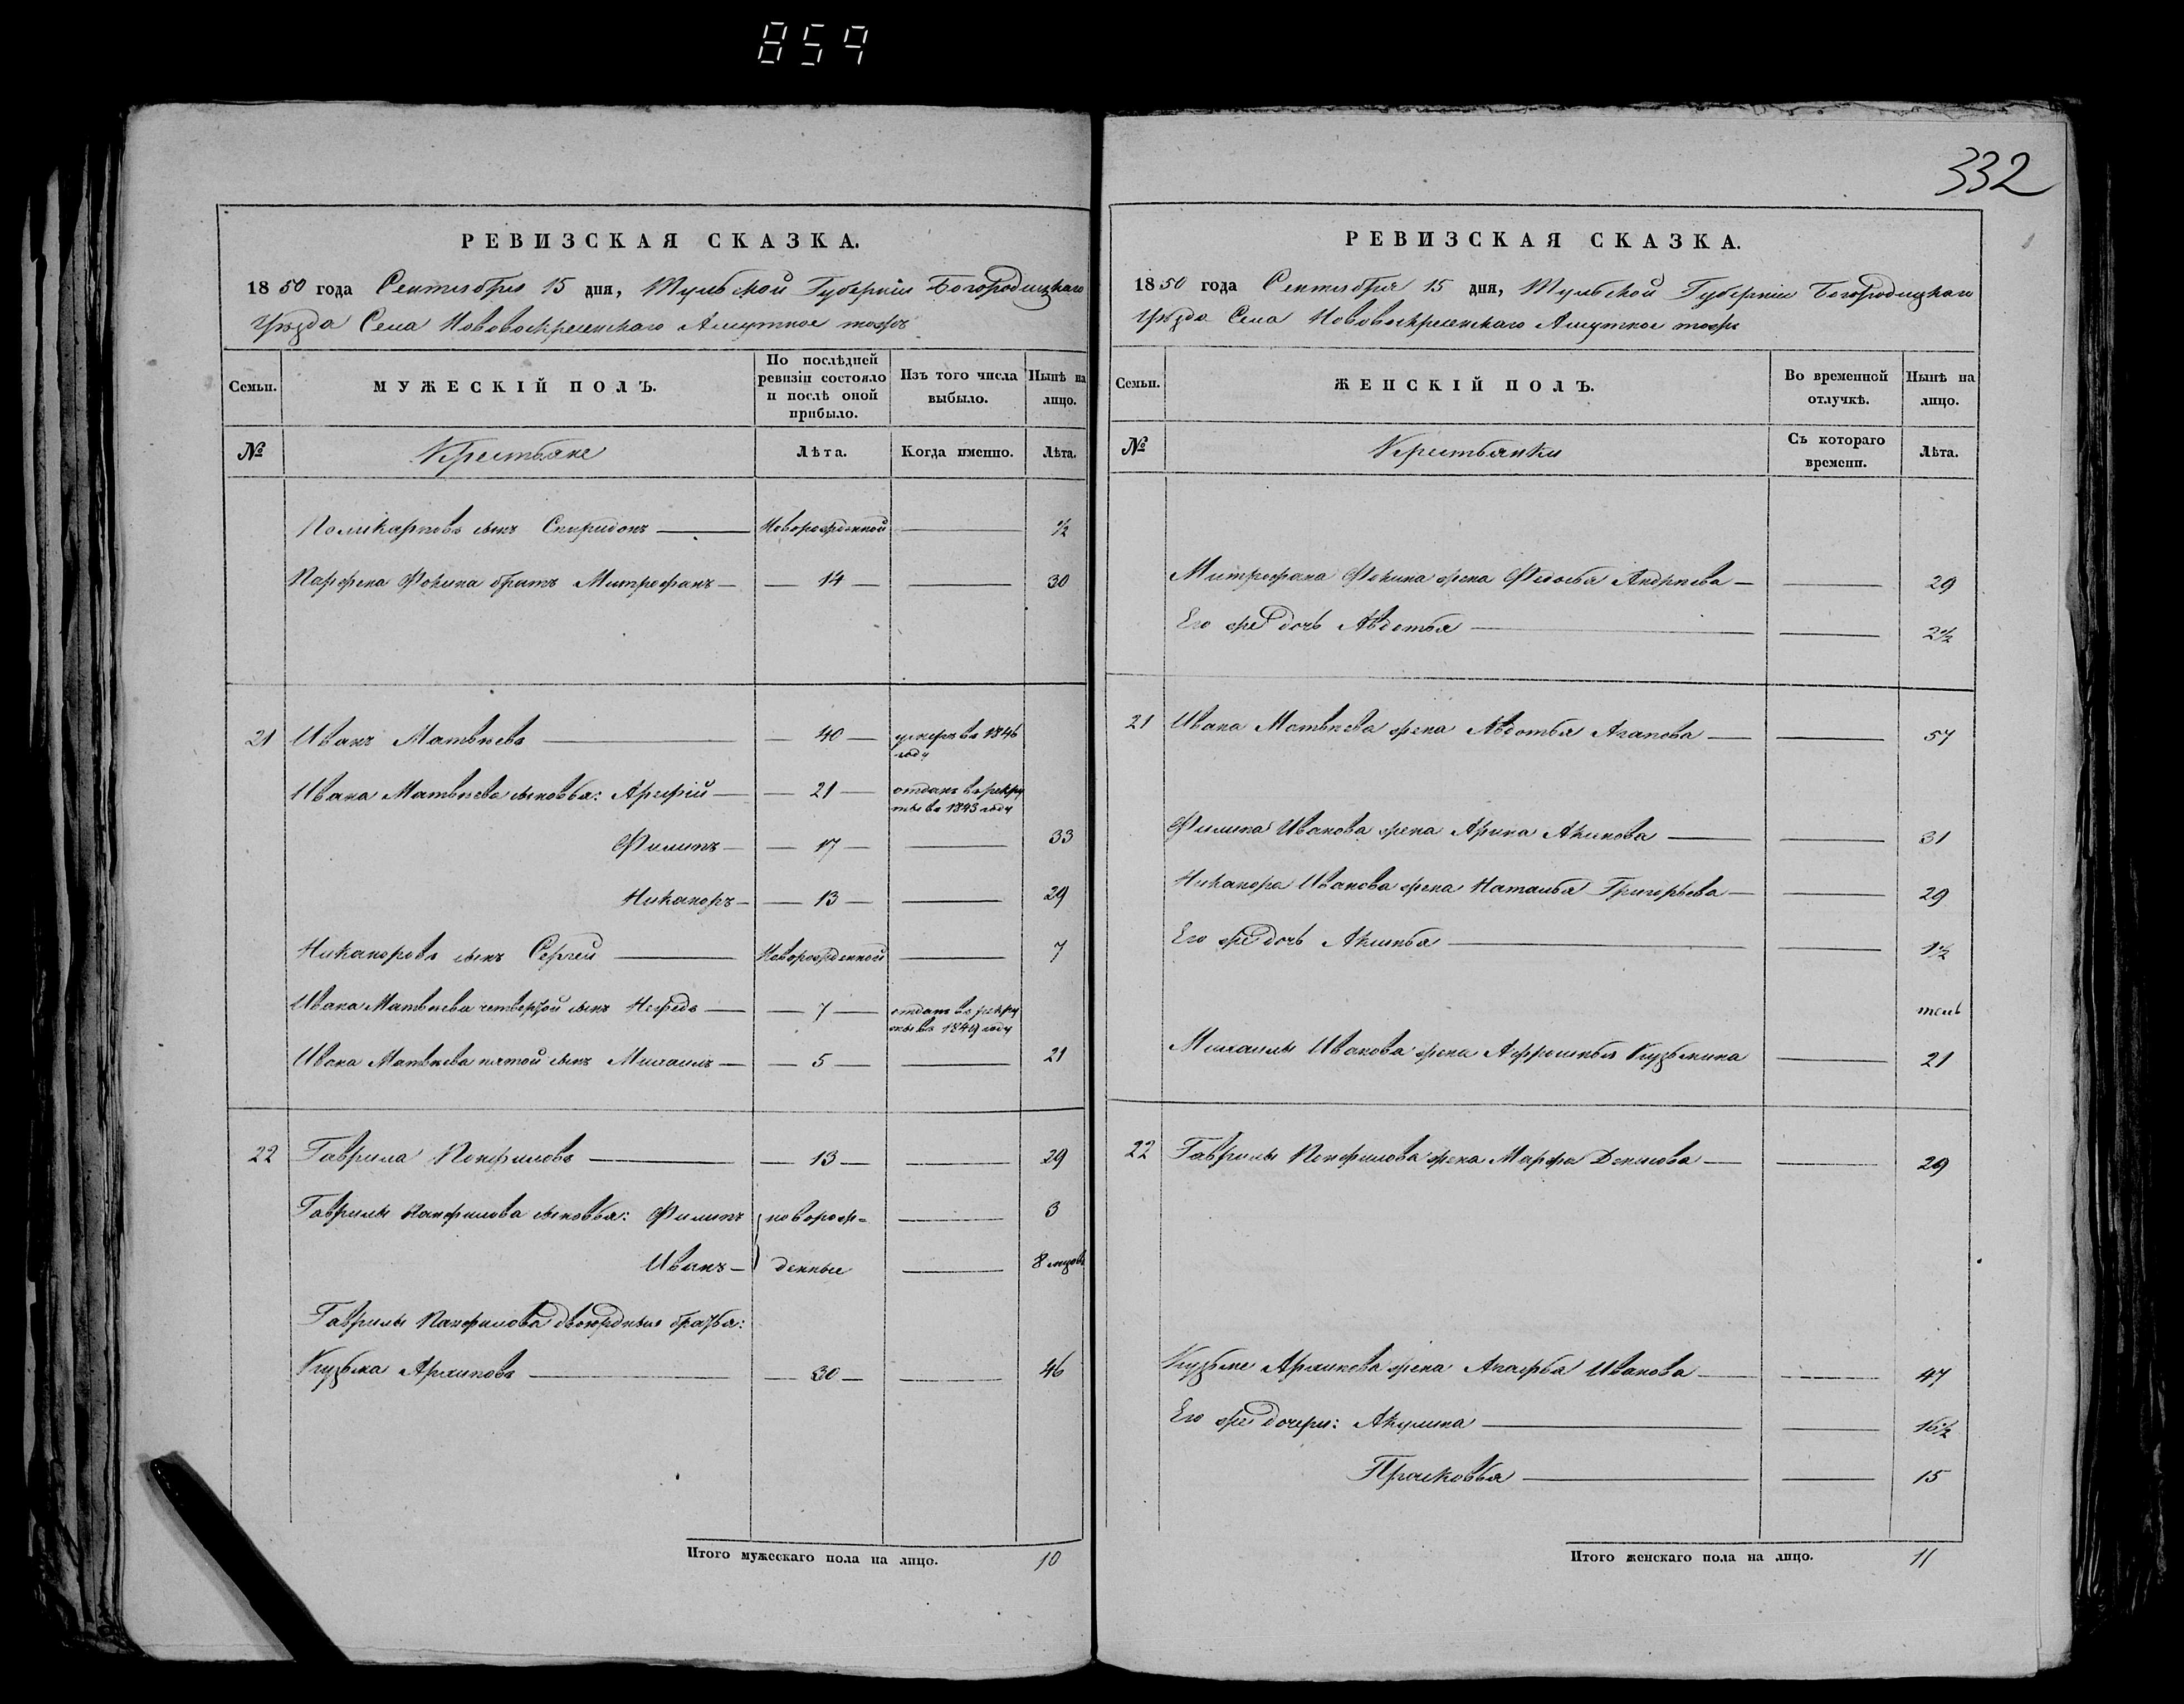 859
332
РЕВИЗСКАЯ СКАЗКА.
1850 года Сентября 15 дня, Тульской Губернiи Богородицкаго
Уѣзда Села Нововоскресенскаго тожъ
Семьи.
МУЖЕСКIЙ ПОЛЪ.
По послѣдней
ревизiи состояло
и послѣ оной
прибыло.
Изъ того числа
выбыло.
Нынѣ на
лицо.
№
Крестьяне
Лѣта.
Когда именно.
Лѣта.
Поликарповъ сынъ Спиридонъ — Новорожденной — ½
Парфена Фокина братъ Митрофанъ — 14 — 30
21 Иванъ Матвѣевъ — 40 — умеръ въ 1846
году
Ивана Матвѣева сыновья: Арефiй — 21 — отданъ въ рекру
ты въ 1843 году
Филипъ — 17 — 33
Никаноръ — 13 — 29
Никаноровъ сынъ Сергей — Новорожденной — 7
Ивана Матвѣева четвертой сынъ Нефедъ — 7 — отданъ въ рекру
ты въ 1849 году
Ивана Матвѣева пятой сынъ Михаилъ — 5 — 21
22 Гаврила Панфиловъ — 13 — 29
Гаврилы Панфилова сыновья: Филипъ новорож= — 3
Иванъ — денные — 8 мцовъ
Гаврилы Панфилова двоюродныя братья:
Кузьма Архиповъ — 30 — 46
Итого мужескаго пола на лицо. 10
РЕВИЗСКАЯ СКАЗКА.
1850 года Сентября 15 дня, Тульской Губернiи Богородицкаго
Уѣзда Села Нововоскресенскаго тожъ
Семьи.
ЖЕНСКIЙ ПОЛЪ.
Во временной
отлучкѣ.
Нынѣ на
лицо.
№
Крестьянки
Съ котораго
времени.
Лѣта.
Митрофана Фокина жена Федосья Андрѣева — 29
Его же дочь Авдотья — 2½
21 Ивана Матвѣева жена Авдотья Агапова — 57
Филипа Иванова жена Арина Акимова — 31
Никанора Иванова жена Наталья Григорьева — 29
Его же дочь — 1½
Михаилы Иванова жена Афросинья Кузьмина — 21
22 Гаврилы Панфилова жена Марфа Денисова — 29
Кузьмы Архипова жена Агафья Иванова — 47
Его же дочери: Акулина — 16½
Прасковья — 15
Итого женскаго пола на лицо. 11